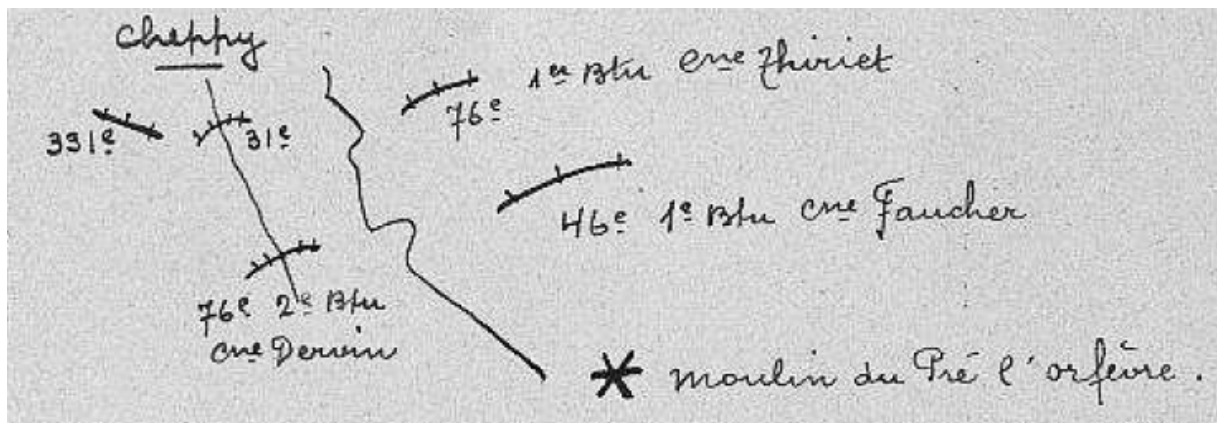 Cheppy
76e 1er Btn Cne Thiriet
331e
31e
46e 1e Btn Cne Faucher
76e 2e Btn
Cne Dervin
moulin du Pré l'orfèvre.